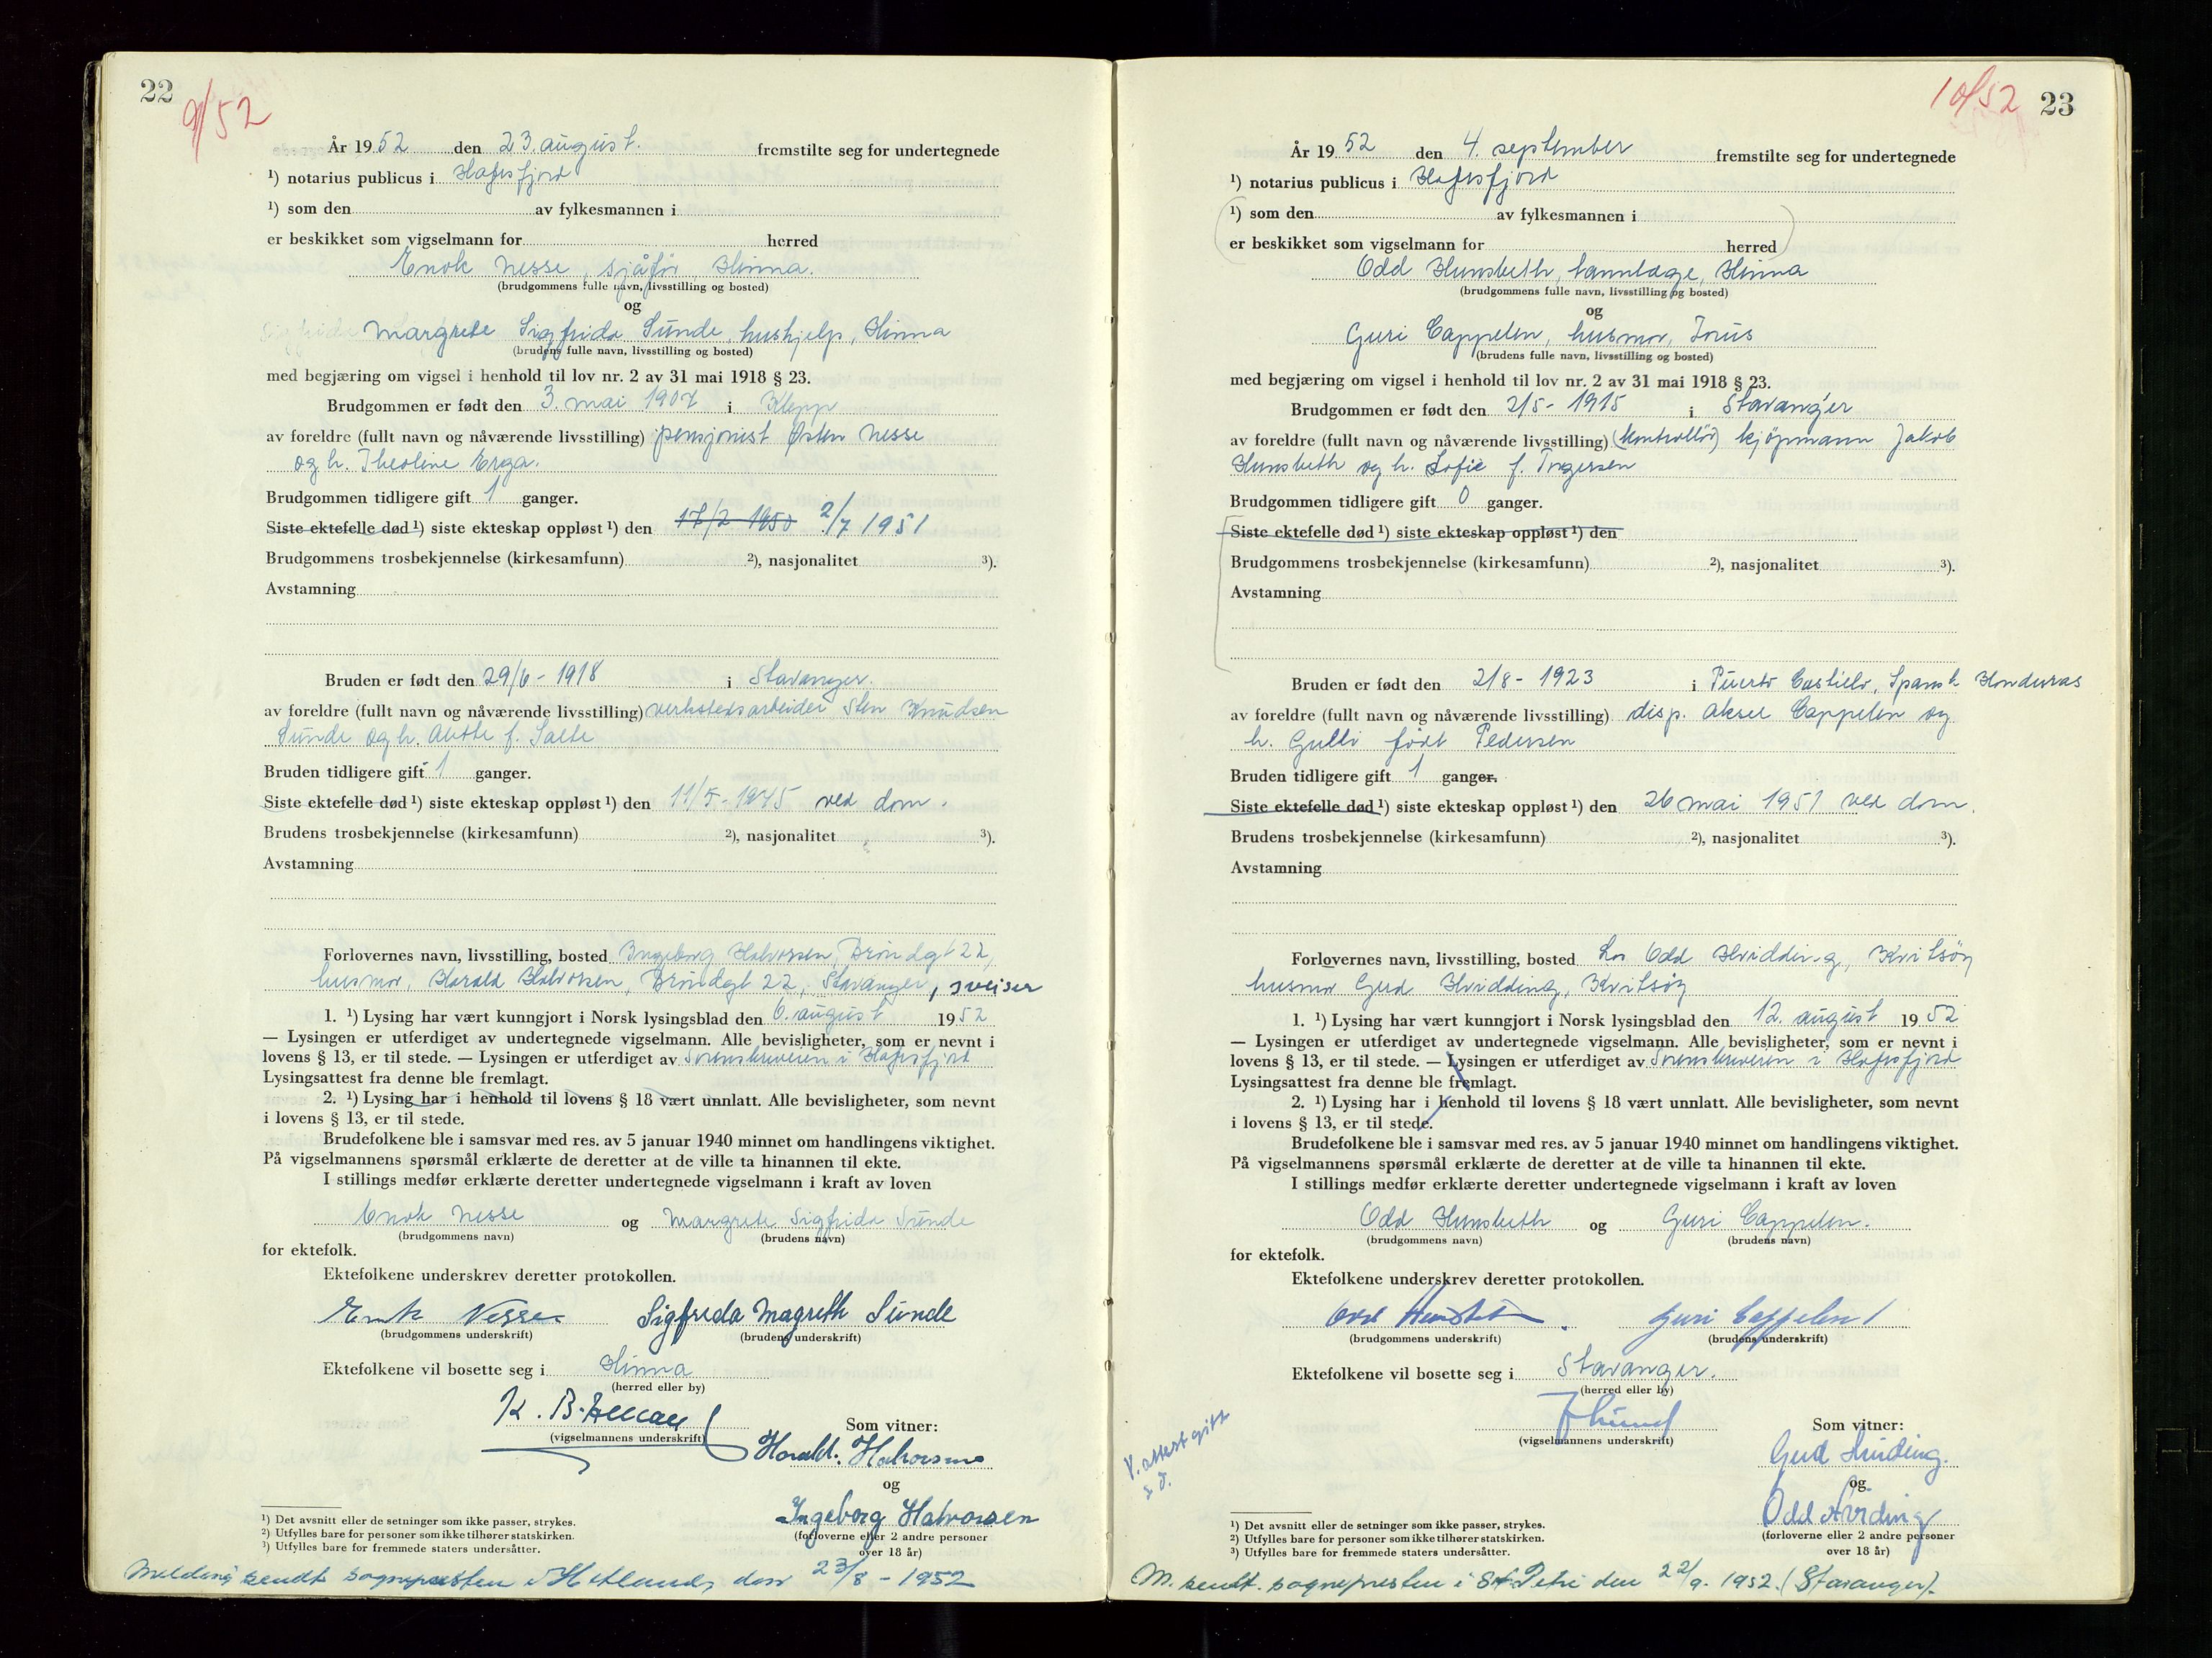 22
9/52
År 1952 den 23. august. fremstilte seg for undertegnede
¹) notarius publicus i Hafrsfjord
¹) som den av fylkesmannen i
er beskikket som vigselmann for herred
Enok Nesse, sjåfør, Hinna.
(brudgommens fulle navn, livsstilling og bosted)
og
Margrete Sigfrida Sunde, hushjelp, Hinna
(brudens fulle navn, livsstilling og bosted)
med begjæring om vigsel i henhold til lov nr. 2 av 31 mai 1918 § 23.
Brudgommen er født den 3. mai 1907 i Klepp
av foreldre (fullt navn og nåværende livsstilling) pensjonist Østen Nesse
og h. Theoline Erga.
Brudgommen tidligere gift 1 ganger.
Siste ektefelle død ¹) siste ekteskap oppløst ¹) den 17/2 1950 2/7 1951
Brudgommens trosbekjennelse (kirkesamfunn) ²), nasjonalitet ³).
Avstamning
Bruden er født den 29/6 - 1918 i Stavanger.
av foreldre (fullt navn og nåværende livsstilling) verkstedsarbeider Sten Knudsen
Sunde og h. f. Salte
Bruden tidligere gift 1 ganger.
Siste ektefelle død ¹) siste ekteskap oppløst ¹) den 11/5 - 1945 ved dom.
Brudens trosbekjennelse (kirkesamfunn) ²), nasjonalitet ³).
Avstamning
Forlovernes navn, livsstilling, bosted Ingeborg Halvorsen, Brøndgt 22,
husmor, Harald Halvorsen, Brøndgt 22, Stavanger, sveiser
1. ¹) Lysing har vært kunngjort i Norsk lysingsblad den 6. august 1952
— Lysingen er utferdiget av undertegnede vigselmann. Alle bevisligheter, som er nevnt i
lovens § 13, er til stede. — Lysingen er utferdiget av Sorenskriveren i Hafrsfjord
Lysingsattest fra denne ble fremlagt.
2. ¹) Lysing har i henhold til lovens § 18 vært unnlatt. Alle bevisligheter, som nevnt
i lovens § 13, er til stede.
Brudefolkene ble i samsvar med res. av 5 januar 1940 minnet om handlingens viktighet.
På vigselmannens spørsmål erklærte de deretter at de ville ta hinannen til ekte.
I stillings medfør erklærte deretter undertegnede vigselmann i kraft av loven
Enok Nesse og Margrete Sigfrida Sunde
(brudgommens navn) (brudens navn)
for ektefolk.
Ektefolkene underskrev deretter protokollen.
Enok Nesse Sigfreda Magreth Sunde
(brudgommens underskrift) (brudens underskrift)
Ektefolkene vil bosette seg i Hinna
(herred eller by)
K. B.
(vigselmannens underskrift)
Som vitner:
Harald Halvorsen
og
Ingeborg Halvorsen
(forloverne eller 2 andre personer
over 18 år)
¹) Det avsnitt eller de setninger som ikke passer, strykes.
²) Utfylles bare for personer som ikke tilhører statskirken.
³) Utfylles bare for fremmede staters undersåtter.
Melding sendt sognepresten i Hetland, den 23/8 - 1952
10/52
23
År 1952 den 4. september fremstilte seg for undertegnede
¹) notarius publicus i Hafrsfjord
¹) som den av fylkesmannen i
er beskikket som vigselmann for herred
Odd Hunsbeth, tannlæge, Hinna
(brudgommens fulle navn, livsstilling og bosted)
og
Guri Cappelen, husmor,
(brudens fulle navn, livsstilling og bosted)
med begjæring om vigsel i henhold til lov nr. 2 av 31 mai 1918 § 23.
Brudgommen er født den 2/5 - 1915 i Stavanger
av foreldre (fullt navn og nåværende livsstilling) (kontrollør) kjøpmann Jakob
Hunsbeth og h. Sofie f. Ingersen
Brudgommen tidligere gift 0 ganger.
Siste ektefelle død ¹) siste ekteskap oppløst ¹) den
Brudgommens trosbekjennelse (kirkesamfunn) ²), nasjonalitet ³).
Avstamning
Bruden er født den 2/8 - 1923 i Puerto Castillo, Spansk Honduras
av foreldre (fullt navn og nåværende livsstilling) disp. Aksel Cappelen og
h. Gulli født Pedersen
Bruden tidligere gift 1 ganger.
Siste ektefelle død ¹) siste ekteskap oppløst ¹) den 26 mai 1951 ved dom.
Brudens trosbekjennelse (kirkesamfunn) ²), nasjonalitet ³).
Avstamning
Forlovernes navn, livsstilling, bosted Los Odd Hvidding, Kvitsøy
husmor Gud Hvidding, Kvitsøy
1. ¹) Lysing har vært kunngjort i Norsk lysingsblad den 12. august 1952
— Lysingen er utferdiget av undertegnede vigselmann. Alle bevisligheter, som er nevnt i
lovens § 13, er til stede. — Lysingen er utferdiget av Sorenskriveren i Hafrsfjord
Lysingsattest fra denne ble fremlagt.
2. ¹) Lysing har i henhold til lovens § 18 vært unnlatt. Alle bevisligheter, som nevnt
i lovens § 13, er til stede.
Brudefolkene ble i samsvar med res. av 5 januar 1940 minnet om handlingens viktighet.
På vigselmannens spørsmål erklærte de deretter at de ville ta hinannen til ekte.
I stillings medfør erklærte deretter undertegnede vigselmann i kraft av loven
Odd Hunsbeth og Guri Cappelen.
(brudgommens navn) (brudens navn)
for ektefolk.
Ektefolkene underskrev deretter protokollen.
Odd Hunsbeth Guri Cappelen
(brudgommens underskrift) (brudens underskrift)
Ektefolkene vil bosette seg i Stavanger.
(herred eller by)
(vigselmannens underskrift)
V. attest gitt
s. d.
Som vitner:
Gud Hviding.
og
Odd Hviding
(forloverne eller 2 andre personer
over 18 år)
¹) Det avsnitt eller de setninger som ikke passer, strykes.
²) Utfylles bare for personer som ikke tilhører statskirken.
³) Utfylles bare for fremmede staters undersåtter.
M. sendt. sognepresten i St. Petri den 22/9. 1952. (Stavanger).